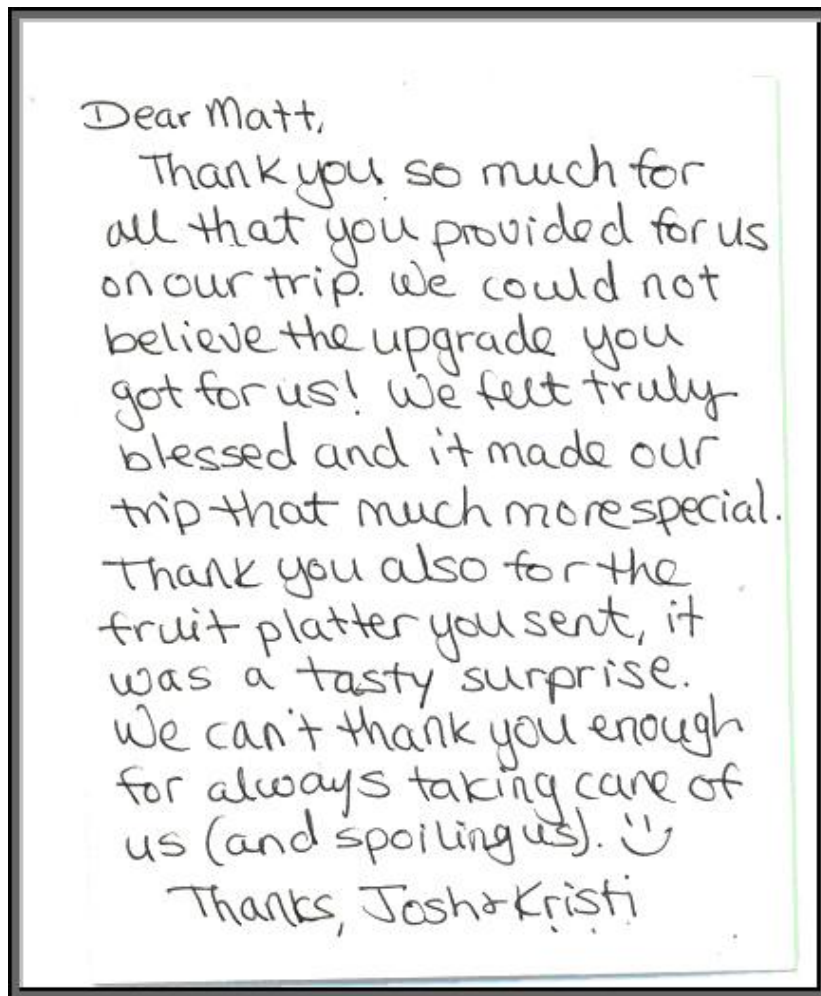 Dear Matt,
Thank you so much for
all that you provided for us
on our trip. We could not
believe the upgrade you
got for us! We felt truly
blessed and it made our
trip that much more special.
Thank you also for the
fruit platter you sent, it
was a tasty surprise.
We can't thank you enough
for always taking care of
us (and spoiling us). :)
Thanks, Josh & Kristi